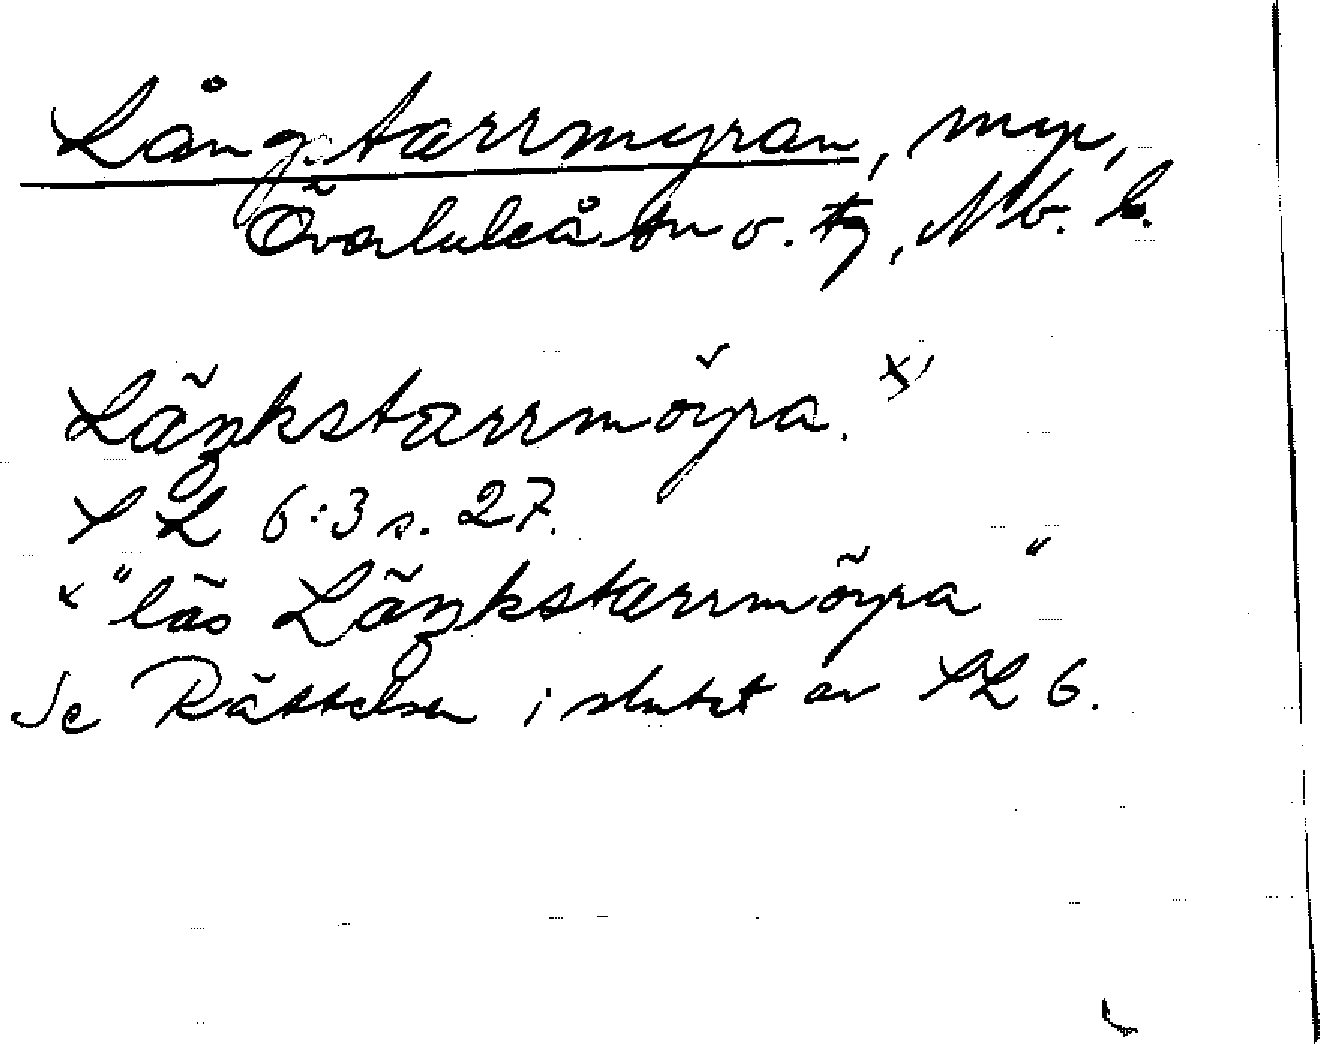 Långstarrmyran, myr,
Överluleå sn o. tg, Nb. l.
Länkstarrmöyra. x)
SL 6:3 s. 27.
x "läs Länkstarrmöyra"
Se Rättelser i slutet av SL 6.